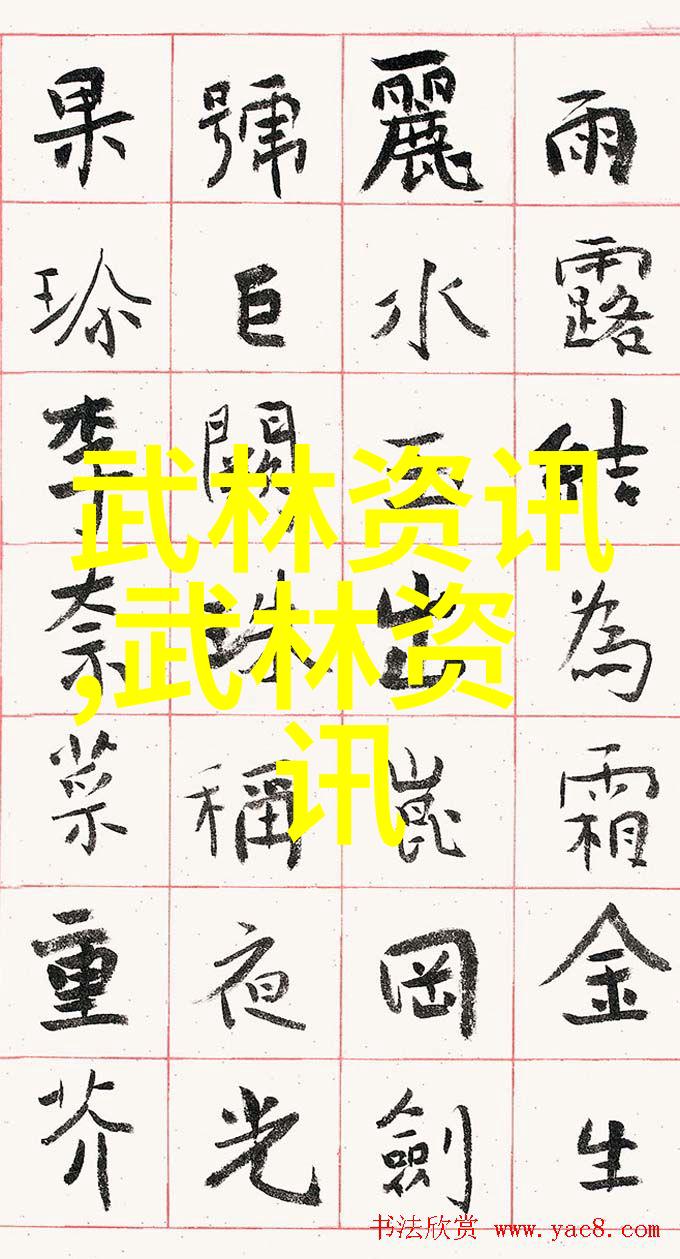 雨露結為霜金生
麗水玉出崑岡劍
號巨闕珠稱夜光
果珍李奈菜重芥
武林资讯
,武林资
讯
书法欣赏 www.yac8.com